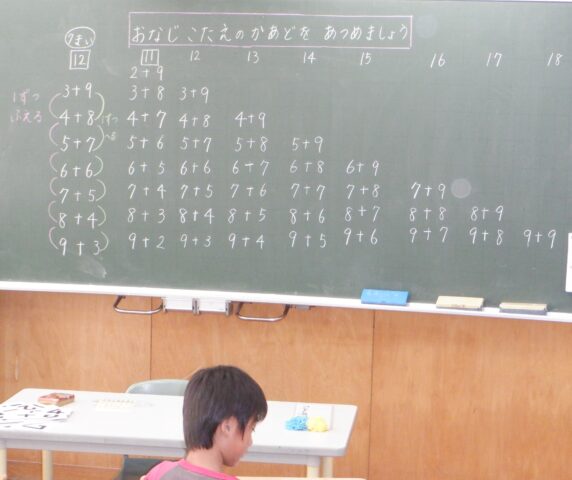 おなじ こたえの かあどを あつめましょう
12
11 12 13 14 15 16 17 18
2+9
3+9 3+8 3+9
4+8 4+7 4+8 4+9
5+7 5+6 5+7 5+8 5+9
6+6 6+5 6+6 6+7 6+8 6+9
7+5 7+4 7+5 7+6 7+7 7+8 7+9
8+4 8+3 8+4 8+5 8+6 8+7 8+8 8+9
9+3 9+2 9+3 9+4 9+5 9+6 9+7 9+8 9+9
1ずつ
ふえる